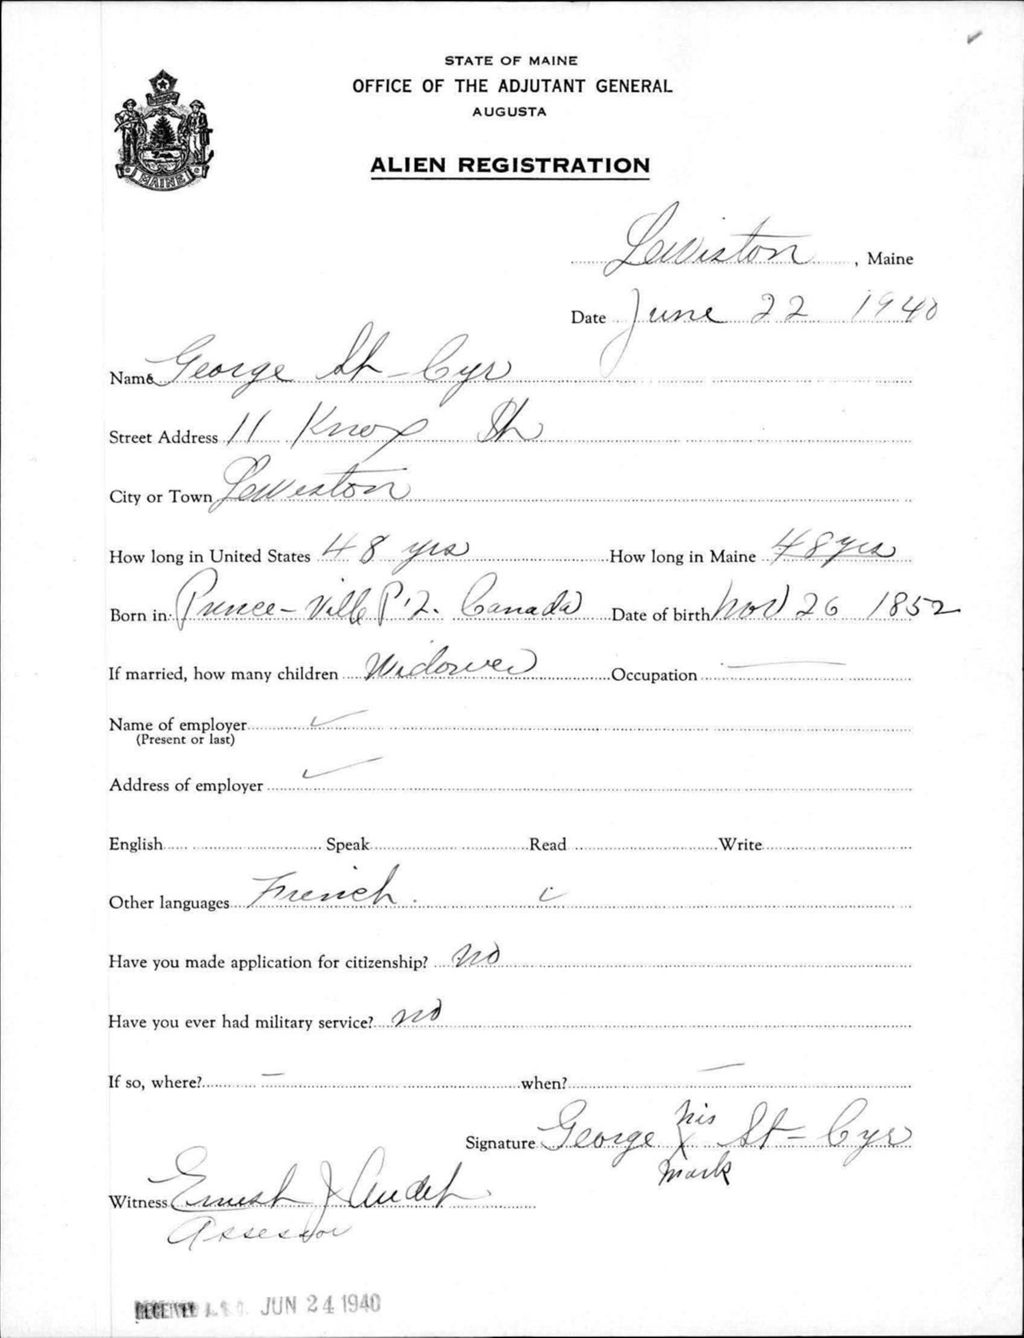 STATE OF MAINE
OFFICE OF THE ADJUTANT GENERAL
AUGUSTA
ALIEN REGISTRATION
MAINE
Lewiston, Maine
Date June 22 1940
Name George St-Cyr
Street Address 11 Knox St
City or Town Lewiston
How long in United States 48 yrs How long in Maine 48 yrs
Born in Prince-Ville P.Q. Canada Date of birth Nov 26 1852
If married, how many children Widower Occupation —
Name of employer ✓
(Present or last)
Address of employer ✓
English Speak Read Write
Other languages French.
Have you made application for citizenship? no
Have you ever had military service? no
If so, where? — when? —
his
Signature George X St-Cyr
mark
Witness Ernest J Audet
Assessor
RECEIVED A.G.O. JUN 24 1940